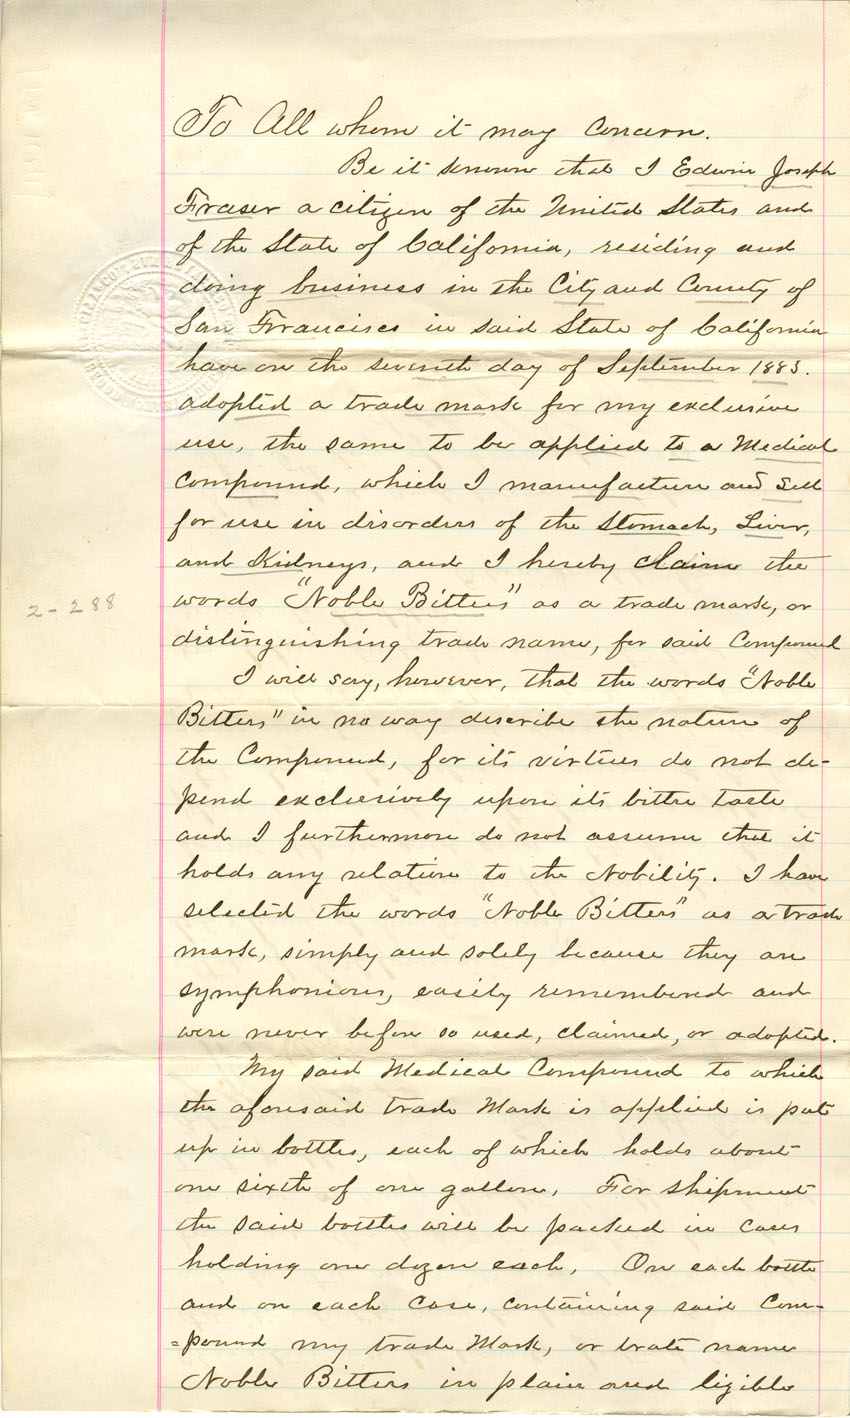 To All whom it may Concern.
Be it known that I Edwin Joseph
Fraser a citizen of the United States and
of the State of California, residing and
doing business in the City and County of
San Francisco in said State of California
have on the seventh day of September 1883.
adopted a trade mark for my exclusive
use, the same to be applied to a Medical
Compound, which I manufacture and Sell
for use in disorders of the Stomach, Liver,
and Kidneys, and I hereby claim the
words "Noble Bitters" as a trade mark, or
2-288
distinguishing trade name, for said Compound
I will say, however, that the words "Noble
Bitters" in no way describe the nature of
the Compound, for its virtues do not de-
pend exclusively upon its bitter taste
and I furthermore do not assume that it
holds any relation to the Nobility. I have
selected the words "Noble Bitters" as a trade
mark, simply and solely because they are
symphonious, easily remembered and
were never before so used, claimed, or adopted.
My said Medical Compound to which
the aforesaid trade Mark is applied is put
up in bottles, each of which holds about
one sixth of one gallon, For shipment
the said bottles will be packed in cases
holding one dozen each, On each bottle
and on each case, containing said Com-
=pound my trade Mark, or trate name
Noble Bitters in plain and ligible